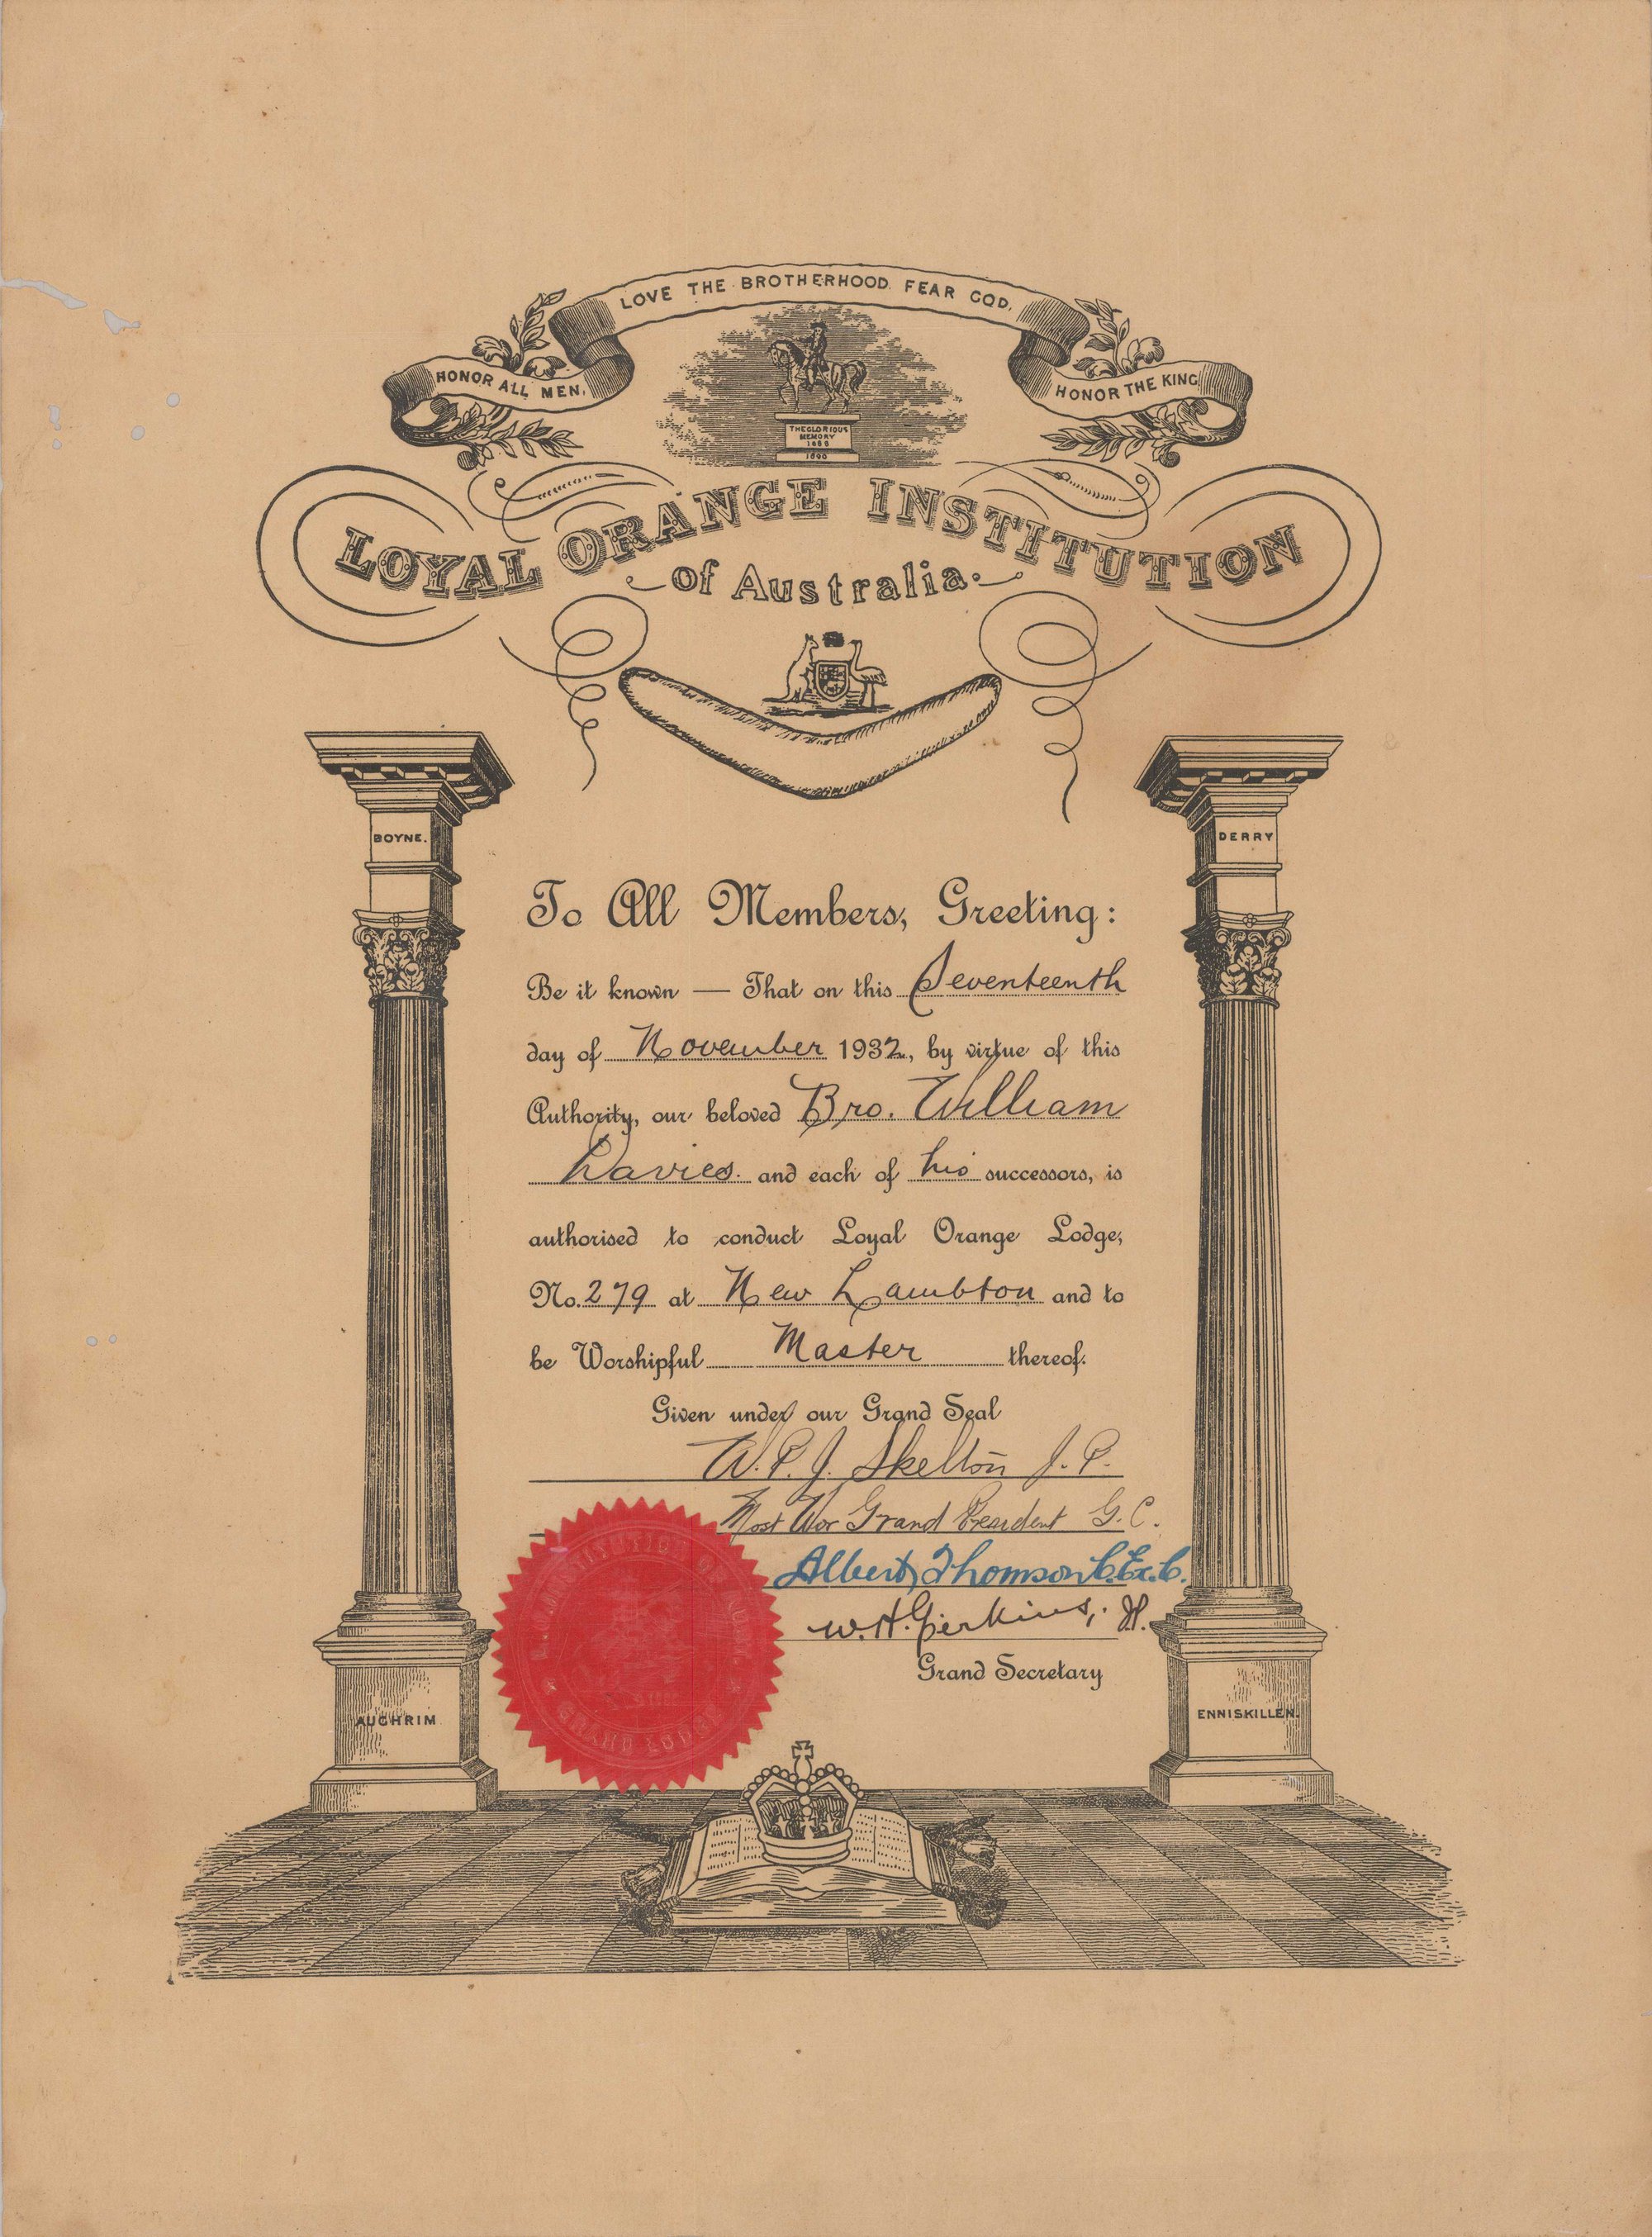 LOVE THE BROTHERHOOD. FEAR GOD.
HONOR ALL MEN.
HONOR THE KING
THE GLORIOUS
MEMORY
1688
1690
LOYAL ORANGE INSTITUTION
of Australia.
BOYNE.
DERRY
To All Members, Greeting:
Be it known — That on this Seventeenth
day of November 1932, by virtue of this
Authority, our beloved Bro. William
Davies. and each of his successors, is
authorised to conduct Loyal Orange Lodge,
No. 279 at New Lambton and to
be Worshipful Master thereof.
Given under our Grand Seal
W. P. J. Skelton J. P.
Most Wor Grand President G. C.
Albert Thomson
W. H. Perkins, JP.
Grand Secretary
INSTITUTION OF
GRAND LODGE
AUGHRIM
ENNISKILLEN.